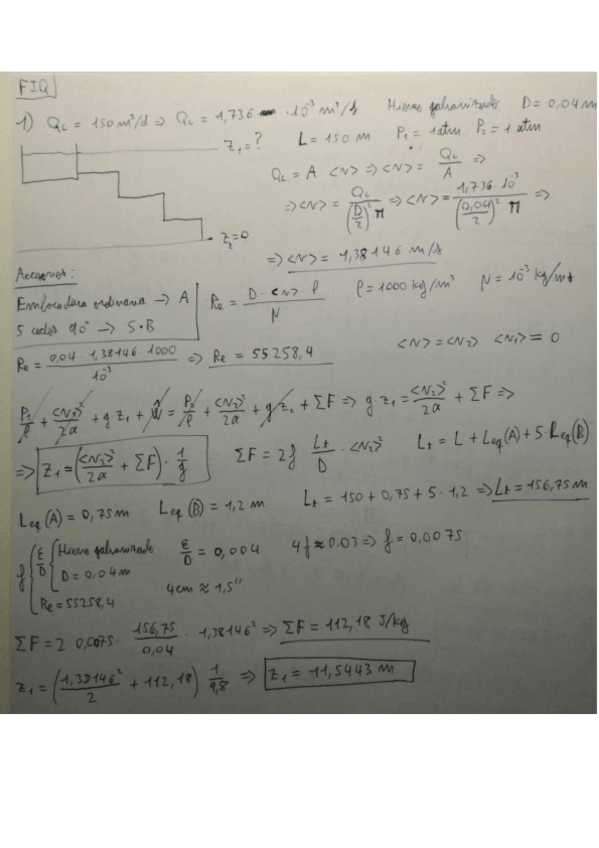 FIQ
1) Q_L = 150 m³/d ⇒ Q_L = 1,736 · 10⁻³ m³/s   Hierro galvanizado   D = 0,04 m
z₁ = ?   L = 150 m   P₁ = 1 atm   P₂ = 1 atm
Q_L = A · <v> ⇒ <v> = Q_L / A ⇒
⇒ <v> = Q_L / ((D/2)² π) ⇒ <v> = 1,736 · 10⁻³ / ((0,04/2)² π) ⇒
z₂ = 0
⇒ <v> = 1,38146 m/s
Accesorios:
Embocadura ordinaria → A
5 codos 90° → 5·B
Re = D · <v> · ρ / μ   ρ = 1000 kg/m³   μ = 10⁻³ kg/ms
Re = 0,04 · 1,38146 · 1000 / 10⁻³ ⇒ Re = 55258,4   <v> = <v₂>   <v₁> = 0
P₁/ρ + <v₁>²/2α + g z₁ + Ŵ = P₂/ρ + <v₂>²/2α + g z₂ + ΣF ⇒ g · z₁ = <v₂>²/2α + ΣF ⇒
⇒ z₁ = (<v₂>²/2α + ΣF) · 1/g   ΣF = 2f Lt/D · <v₂>²   Lt = L + Leq(A) + 5 · Leq(B)
Leq(A) = 0,75 m   Leq(B) = 1,2 m   Lt = 150 + 0,75 + 5 · 1,2 ⇒ Lt = 156,75 m
f { ε/D { Hierro galvanizado   ε/D = 0,004   4f ≈ 0.03 ⇒ f = 0,0075
D = 0,04 m   4cm ≈ 1,5"
Re = 55258,4
ΣF = 2 · 0,0075 · 156,75/0,04 · 1,38146² ⇒ ΣF = 112,18 J/kg
z₁ = (1,38146²/2 + 112,18) 1/9,8 ⇒ z₁ = 11,5443 m